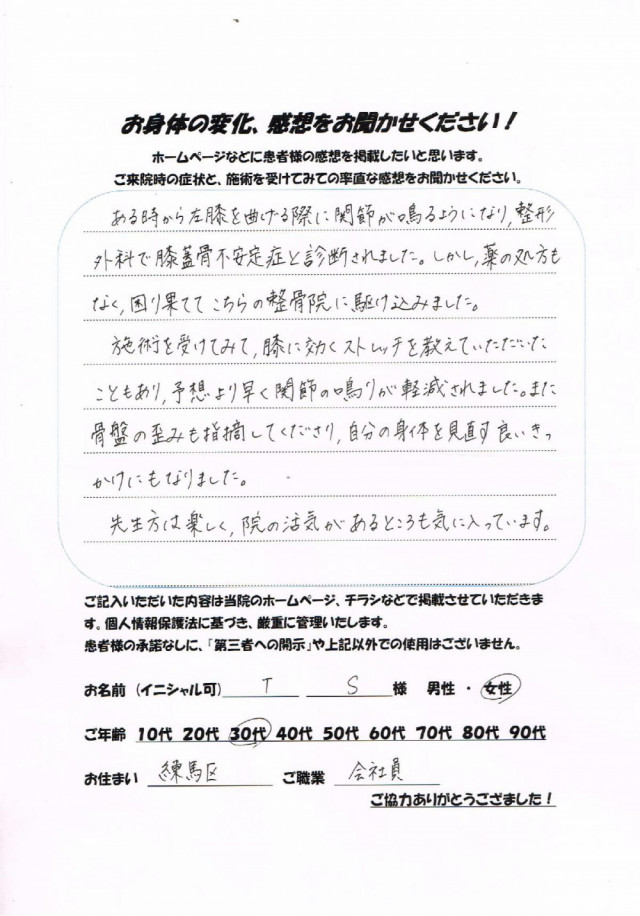 お身体の変化、感想をお聞かせください!
ホームページなどに患者様の感想を掲載したいと思います。
ご来院時の症状と、施術を受けてみての率直な感想をお聞かせください。
ある時から左膝を曲げる際に関節が鳴るようになり,整形
外科で膝蓋骨不安定症と診断されました。しかし,薬の処方も
なく,困り果ててこちらの整骨院に駆け込みました。
施術を受けてみて,膝に効くストレッチを教えていただいた
こともあり,予想より早く関節の鳴りが軽減されました。また
骨盤の歪みも指摘してくださり,自分の身体を見直す良いきっ
かけにもなりました。
先生方は楽しく,院の活気があるところも気に入っています。
ご記入いただいた内容は当院のホームページ、チラシなどで掲載させていただきま
す。個人情報保護法に基づき、厳重に管理いたします。
患者様の承諾なしに、「第三者への開示」や上記以外での使用はございません。
お名前(イニシャル可) T S 様 男性・女性
ご年齢 10代 20代 30代 40代 50代 60代 70代 80代 90代
お住まい 練馬区 ご職業 会社員
ご協力ありがとうござました!